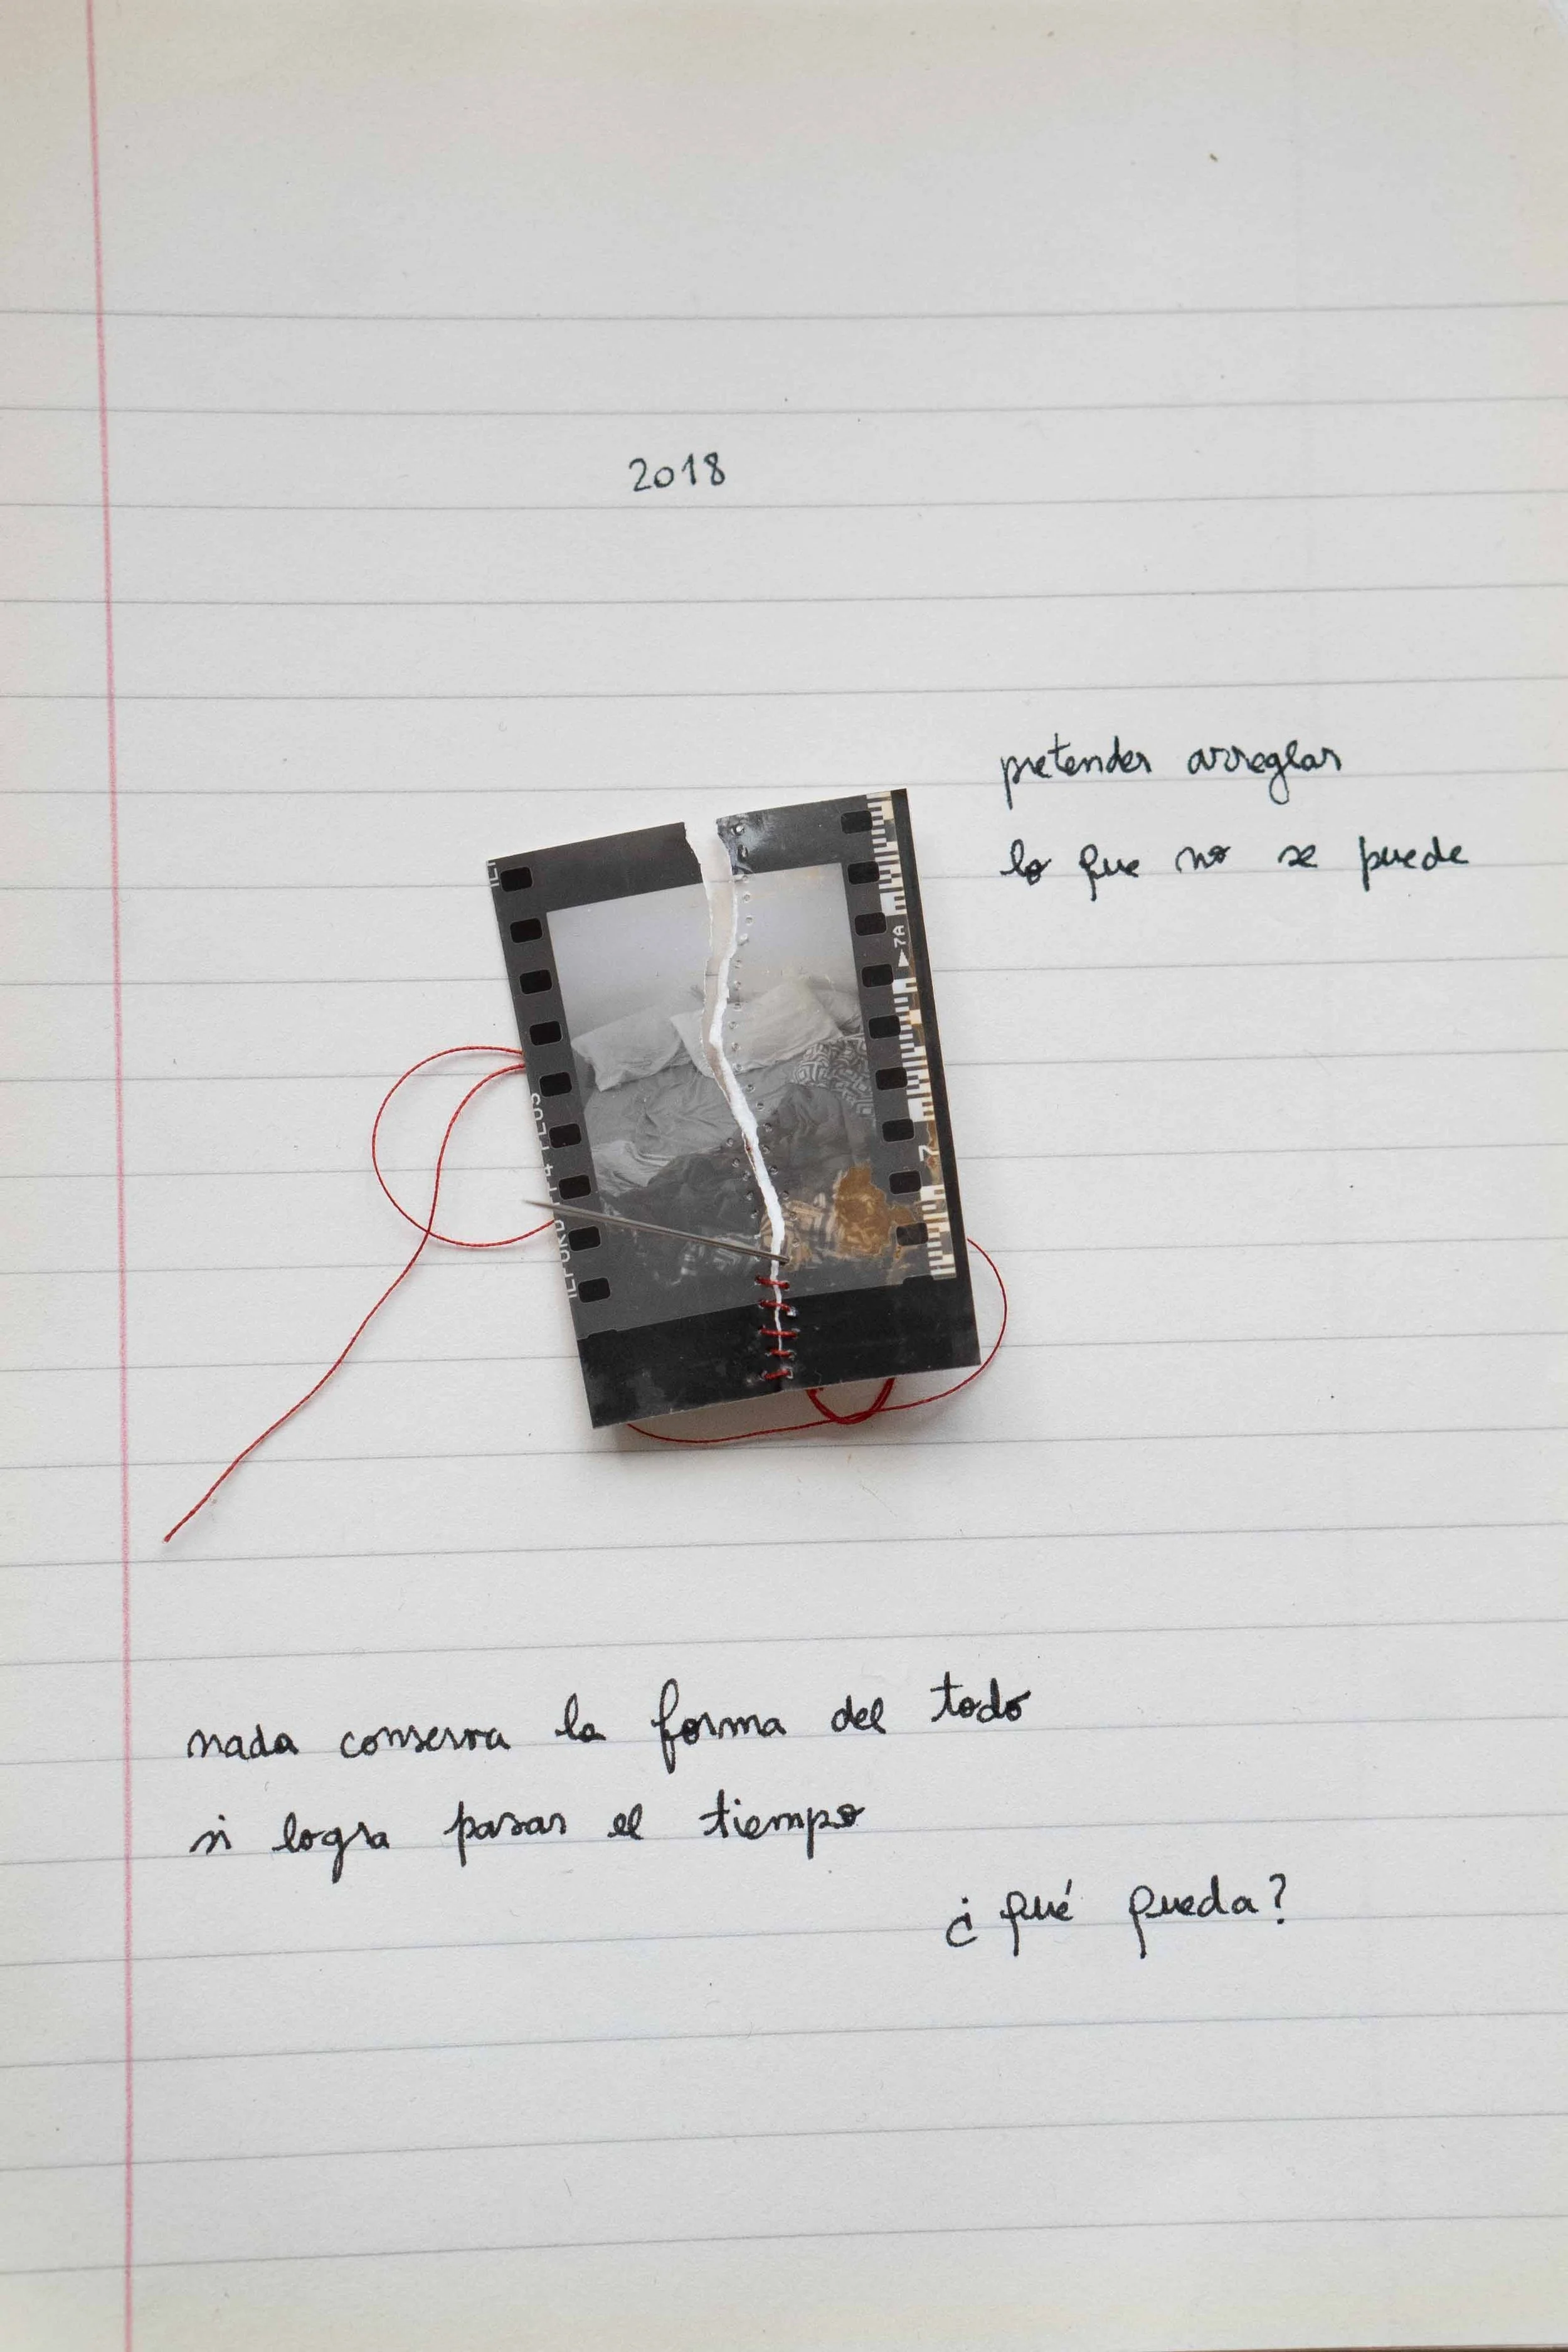 2018
pretender arreglar
lo que no se puede
7A
7
ILFORD FP4 PLUS
nada conserva la forma del todo
si logra pasar el tiempo
¿qué queda?